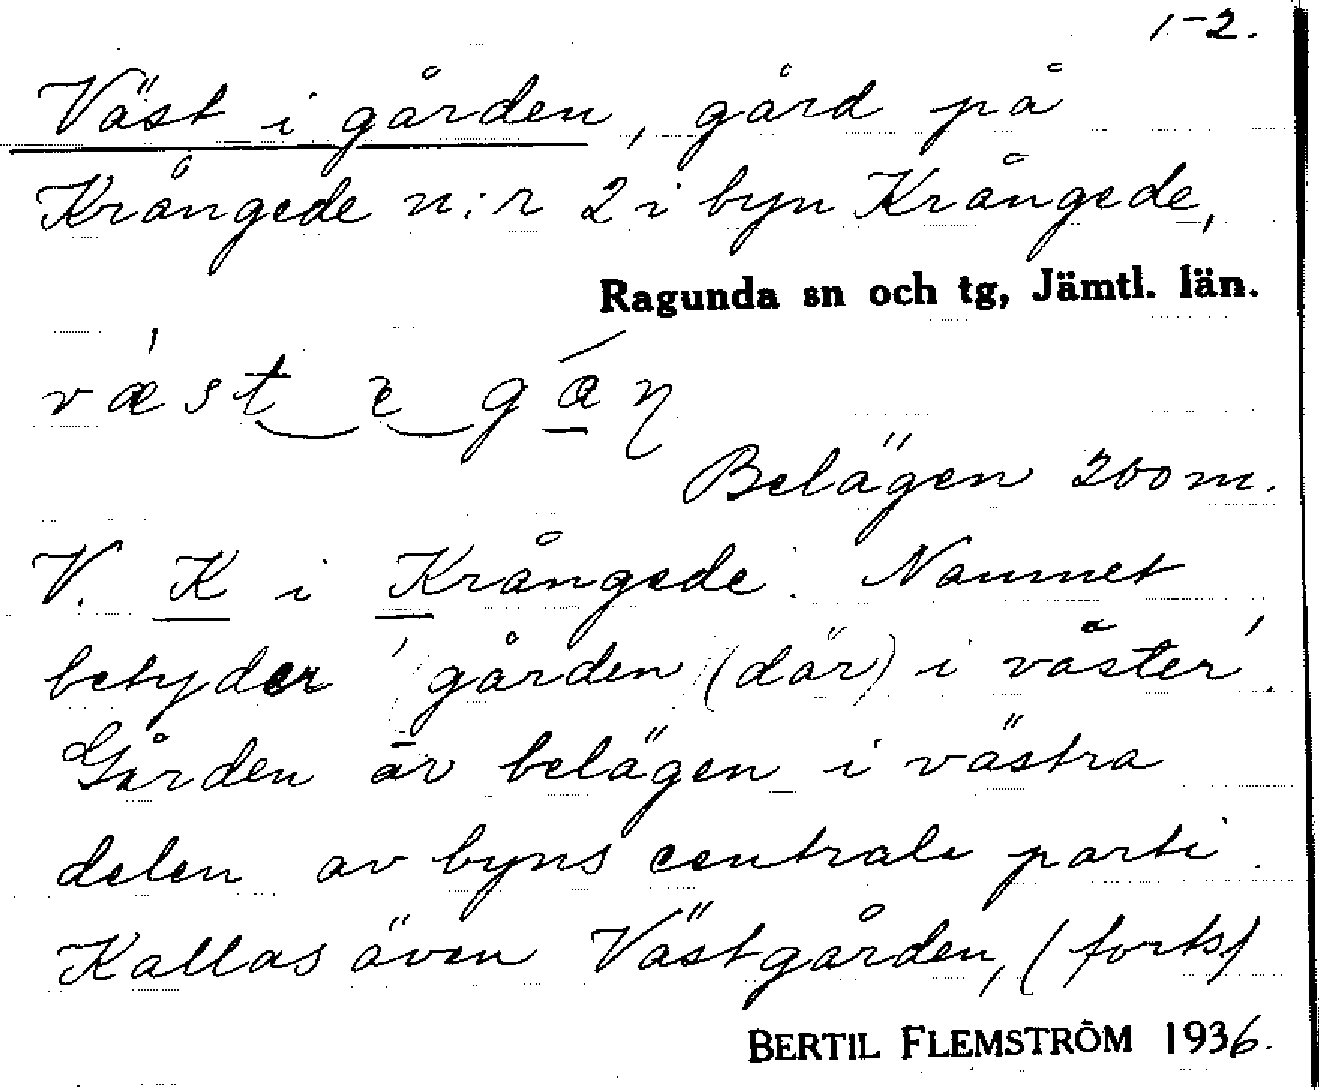 1-2.
Väst i gården, gård på
Krångede n:r 2 i byn Krångede,
Ragunda sn och tg, Jämtl. län.
Belägen 200 m.
V. K i Krångede. Namnet
betyder 'gården (där) i väster'.
Gården är belägen i västra
delen av byns centrala parti.
Kallas även Västgården, (forts)
BERTIL FLEMSTRÖM 1936.